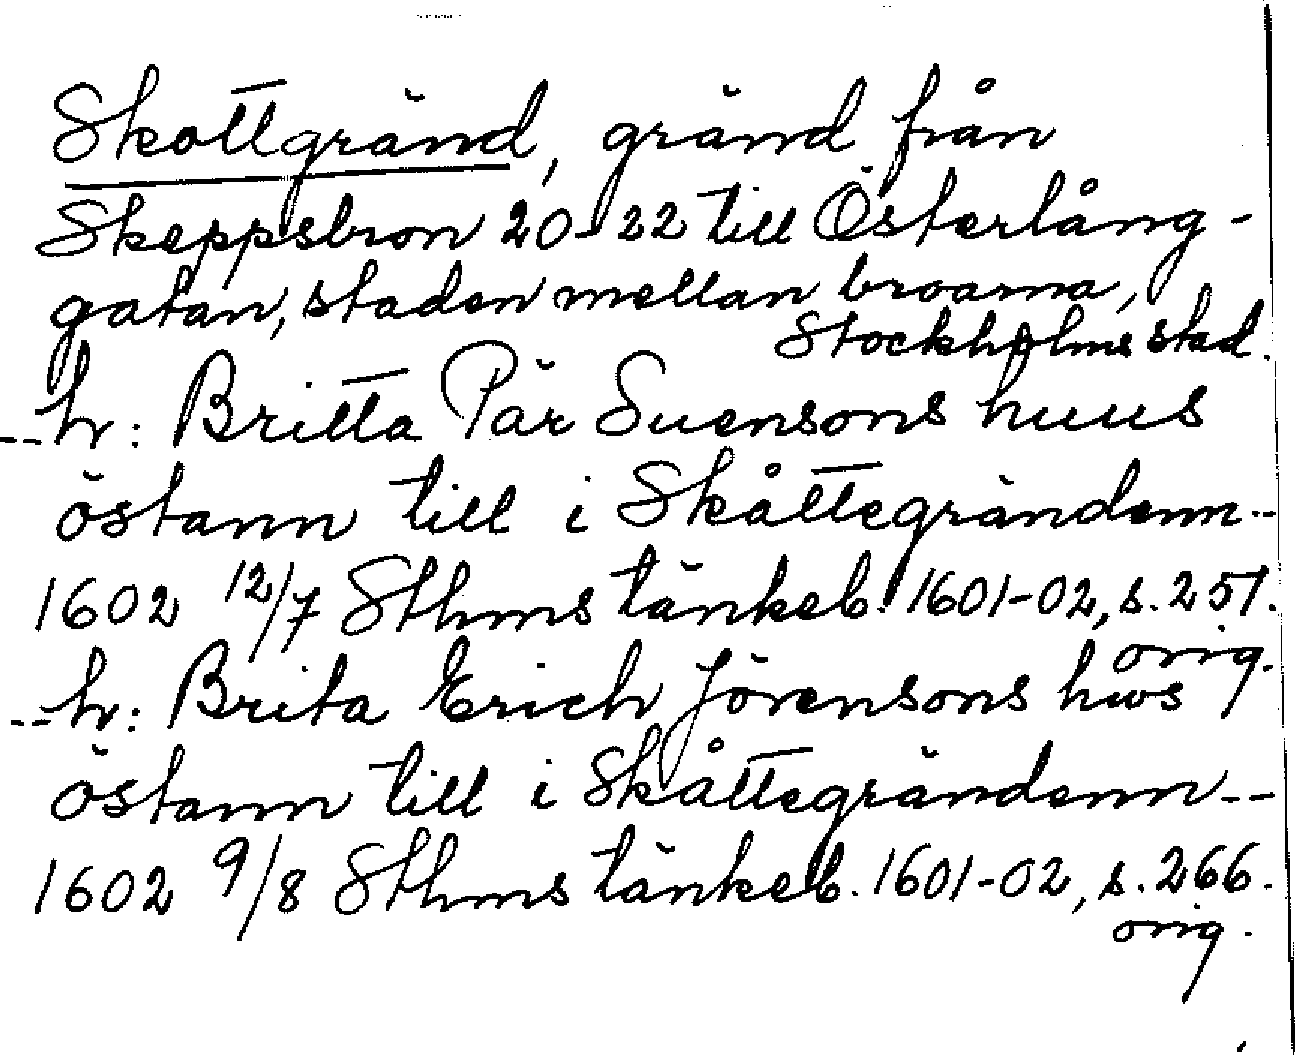 Skottgränd, gränd från
Skeppsbron 20-22 till Österlång-
gatan, staden mellan broarna,
Stockholms stad.
--h: Britta Pär Suensons huus
östann till i Skåttegrändenn--
1602 12/7 Sthms tänkeb. 1601-02, s. 257.
orig.
--h: Brita Erich Jörensons hws
östann till i Skåttegrändenn--
1602 9/8 Sthms tänkeb. 1601-02, s. 266.
orig.